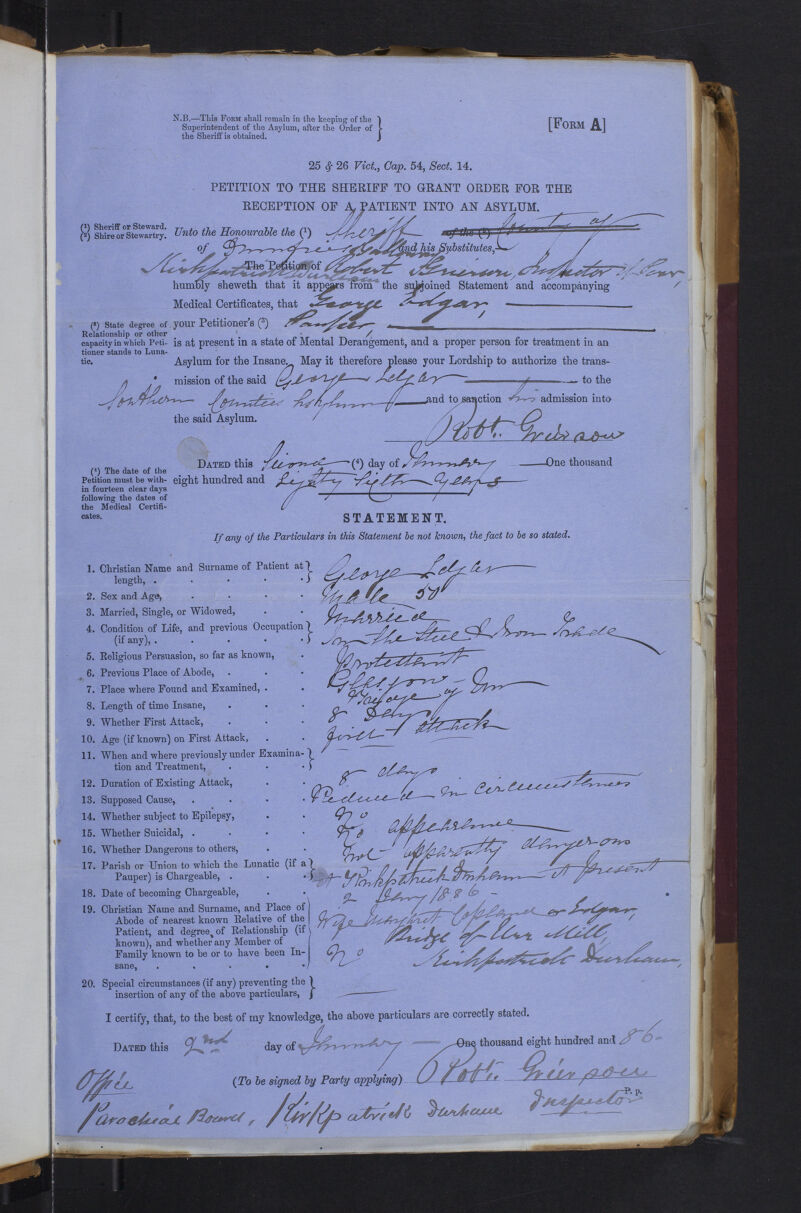 N.B.—This Form shall remain in the keeping of the
Superintendent of the Asylum, after the Order of
the Sheriff is obtained.
[Form A]
25 & 26 Vict., Cap. 54, Sect. 14.
PETITION TO THE SHERIFF TO GRANT ORDER FOR THE
RECEPTION OF A PATIENT INTO AN ASYLUM.
(¹) Sheriff or Steward.
(²) Shire or Stewartry.
Unto the Honourable the (¹) Sheriff of the (²) County of
of Dumfries & Galloway and his Substitutes,—
The Petition of Robert Grierson, Inspector of Poor,
Kirkpatrick Durham
humbly sheweth that it appears from the subjoined Statement and accompanying
Medical Certificates, that George Edgar,
(³) State degree of
Relationship or other
capacity in which Peti-
tioner stands to Luna-
tic.
your Petitioner's (³) Pauper,
is at present in a state of Mental Derangement, and a proper person for treatment in an
Asylum for the Insane. May it therefore please your Lordship to authorize the trans-
mission of the said George Edgar to the
Southern Counties Asylum and to sanction his admission into
the said Asylum.
Robt. Grierson
(⁴) The date of the
Petition must be with-
in fourteen clear days
following the dates of
the Medical Certifi-
cates.
Dated this Second (⁴) day of January One thousand
eight hundred and Eighty Sixth Years
STATEMENT.
If any of the Particulars in this Statement be not known, the fact to be so stated.
1. Christian Name and Surname of Patient at length, . George Edgar
2. Sex and Age, Male 57
3. Married, Single, or Widowed, Married
4. Condition of Life, and previous Occupation (if any), . In the Steel & Iron Trade
5. Religious Persuasion, so far as known, Protestant
6. Previous Place of Abode, Glasgow
7. Place where Found and Examined, Bridge of Urr
8. Length of time Insane, 8 Days
9. Whether First Attack, first attack
10. Age (if known) on First Attack,
11. When and where previously under Examination and Treatment,
12. Duration of Existing Attack, 8 days
13. Supposed Cause, Reduced in circumstances
14. Whether subject to Epilepsy, No
15. Whether Suicidal, No appearance
16. Whether Dangerous to others, not apparently dangerous
17. Parish or Union to which the Lunatic (if a Pauper) is Chargeable, Kirkpatrick Durham at present
18. Date of becoming Chargeable, 2 Jany 1886
19. Christian Name and Surname, and Place of
Abode of nearest known Relative of the
Patient, and degree of Relationship (if
known), and whether any Member of
Family known to be or to have been In-
sane,
Wife Margaret Copland or Edgar,
Bridge of Urr Mill,
Kirkpatrick Durham,
No
20. Special circumstances (if any) preventing the
insertion of any of the above particulars,
I certify, that, to the best of my knowledge, the above particulars are correctly stated.
Dated this 2nd day of January One thousand eight hundred and 86
(To be signed by Party applying) Robt. Grierson
Inspector P. p.
Office
Parochial Board, Kirkpatrick Durham